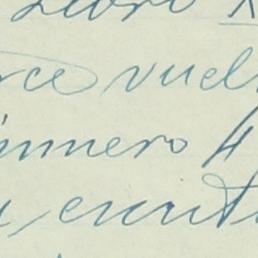 Libro
rce vuel
número 4
escrit